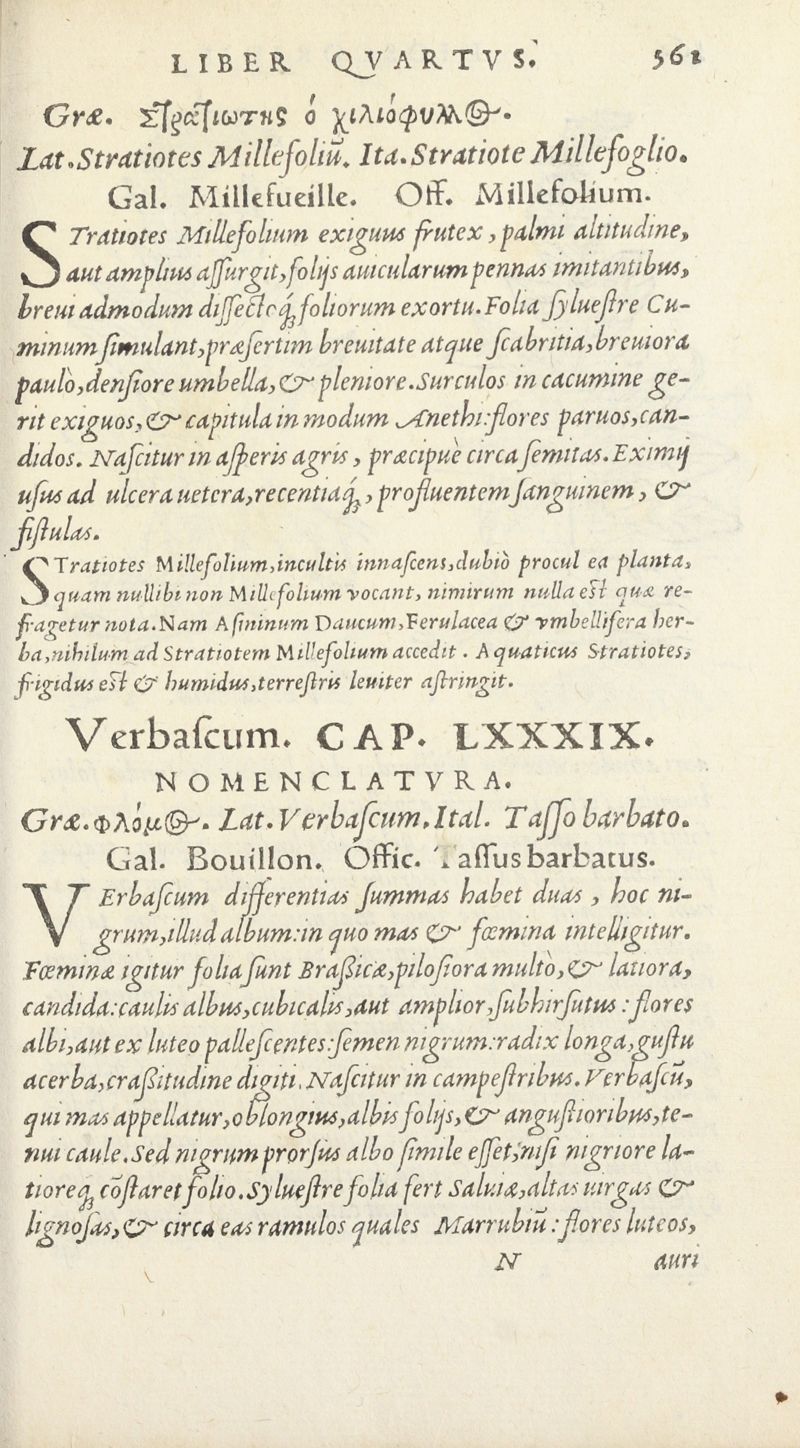 LIBER QVARTVS. 561
Græ. Στρατιωτης ὁ χιλιόφυλλος.
Lat. Stratiotes Millefoliũ. Ita. Stratiote Millefoglio.
Gal. Millefueille. Off. Millefolium.
STratiotes Millefolium exiguus frutex, palmi altitudine,
aut amplius aſſurgit, folijs auicularum pennas imitantibus,
breui admodum diſſectoq́; foliorum exortu. Folia ſylueſtre Cu-
minum ſimulant, præſertim breuitate atque ſcabritia, breuiora
paulò, denſiore umbella, & pleniore. Surculos in cacumine ge-
rit exiguos, & capitula in modum Anethi: flores paruos, can-
didos. Naſcitur in aſperis agris, præcipuè circa ſemitas. Eximij
uſus ad ulcera uetera, recentiaq́;, profluentem ſanguinem, &
fiſtulas.
STratiotes Millefolium, incultis innaſcens, dubiò procul ea planta,
quam nullibi non Millefolium vocant, nimirum nulla est quæ re-
fragetur nota. Nam Aſininum Daucum, Ferulacea & vmbellifera her-
ba, nihilum ad Stratiotem Millefolium accedit. Aquaticus Stratiotes,
frigidus est & humidus, terreſtris leuiter aſtringit.
Verbaſcum. CAP. LXXXIX.
NOMENCLATVRA.
Græ. Φλόμος. Lat. Verbaſcum. Ital. Taſſo barbato.
Gal. Bouillon. Offic. Taſſus barbatus.
VErbaſcum differentias ſummas habet duas, hoc ni-
grum, illud album: in quo mas & fœmina intelligitur.
Fœminæ igitur folia ſunt Braſsicæ, piloſiora multò, & latiora,
candida: caulis albus, cubicalis, aut amplior, ſubhirſutus: flores
albi, aut ex luteo palleſcentes: ſemen nigrum: radix longa, guſtu
acerba, craſsitudine digiti. Naſcitur in campeſtribus. Verbaſcũ,
qui mas appellatur, oblongius, albis folijs, & anguſtioribus, te-
nui caule. Sed nigrum prorſus albo ſimile eſſet, niſi nigriore la-
tioreq́; cõſtaret folio. Sylueſtre folia fert Saluiæ, altas uirgas &
lignoſas, & circa eas ramulos quales Marrubiũ: flores luteos,
N auri